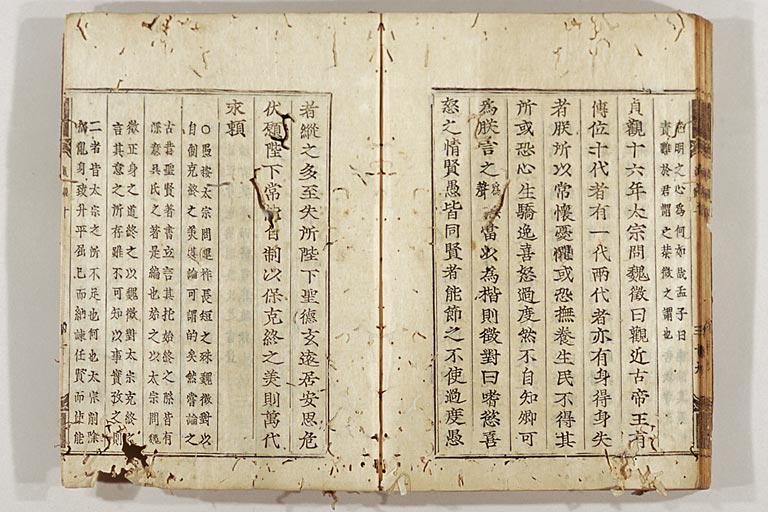 明之心爲何如故孟子曰
責難於君謂之恭徵之謂也
貞觀十六年太宗問魏徵曰觀近古帝王有
傳位十代者有一代兩代者亦有身得身失
者朕所以常懷憂懼或恐撫養生民不得其
所或恐心生驕逸喜怒過度然不自知卿可
爲朕言之聲當以為楷則徵對曰嗜慾喜
怒之情賢愚皆同賢者能節之不使過度愚
者縱之多至失所陛下聖德玄遠居安思危
伏願陛下常自制以保克終之美則萬代
永賴
○愚按太宗問長短之殊魏徵對以
自制克終之美論可謂的矣然嘗論之
古昔聖賢著書立言其托始終之際皆有
深意吳氏之著是編也始之以太宗問魏
徵正身之道終之以魏徵對太宗克終之
言其意之所存雖不可知以事實攷之則
二者皆太宗之所不足也何也太宗削除
亂身致升平屈己而納諫任賢而使能